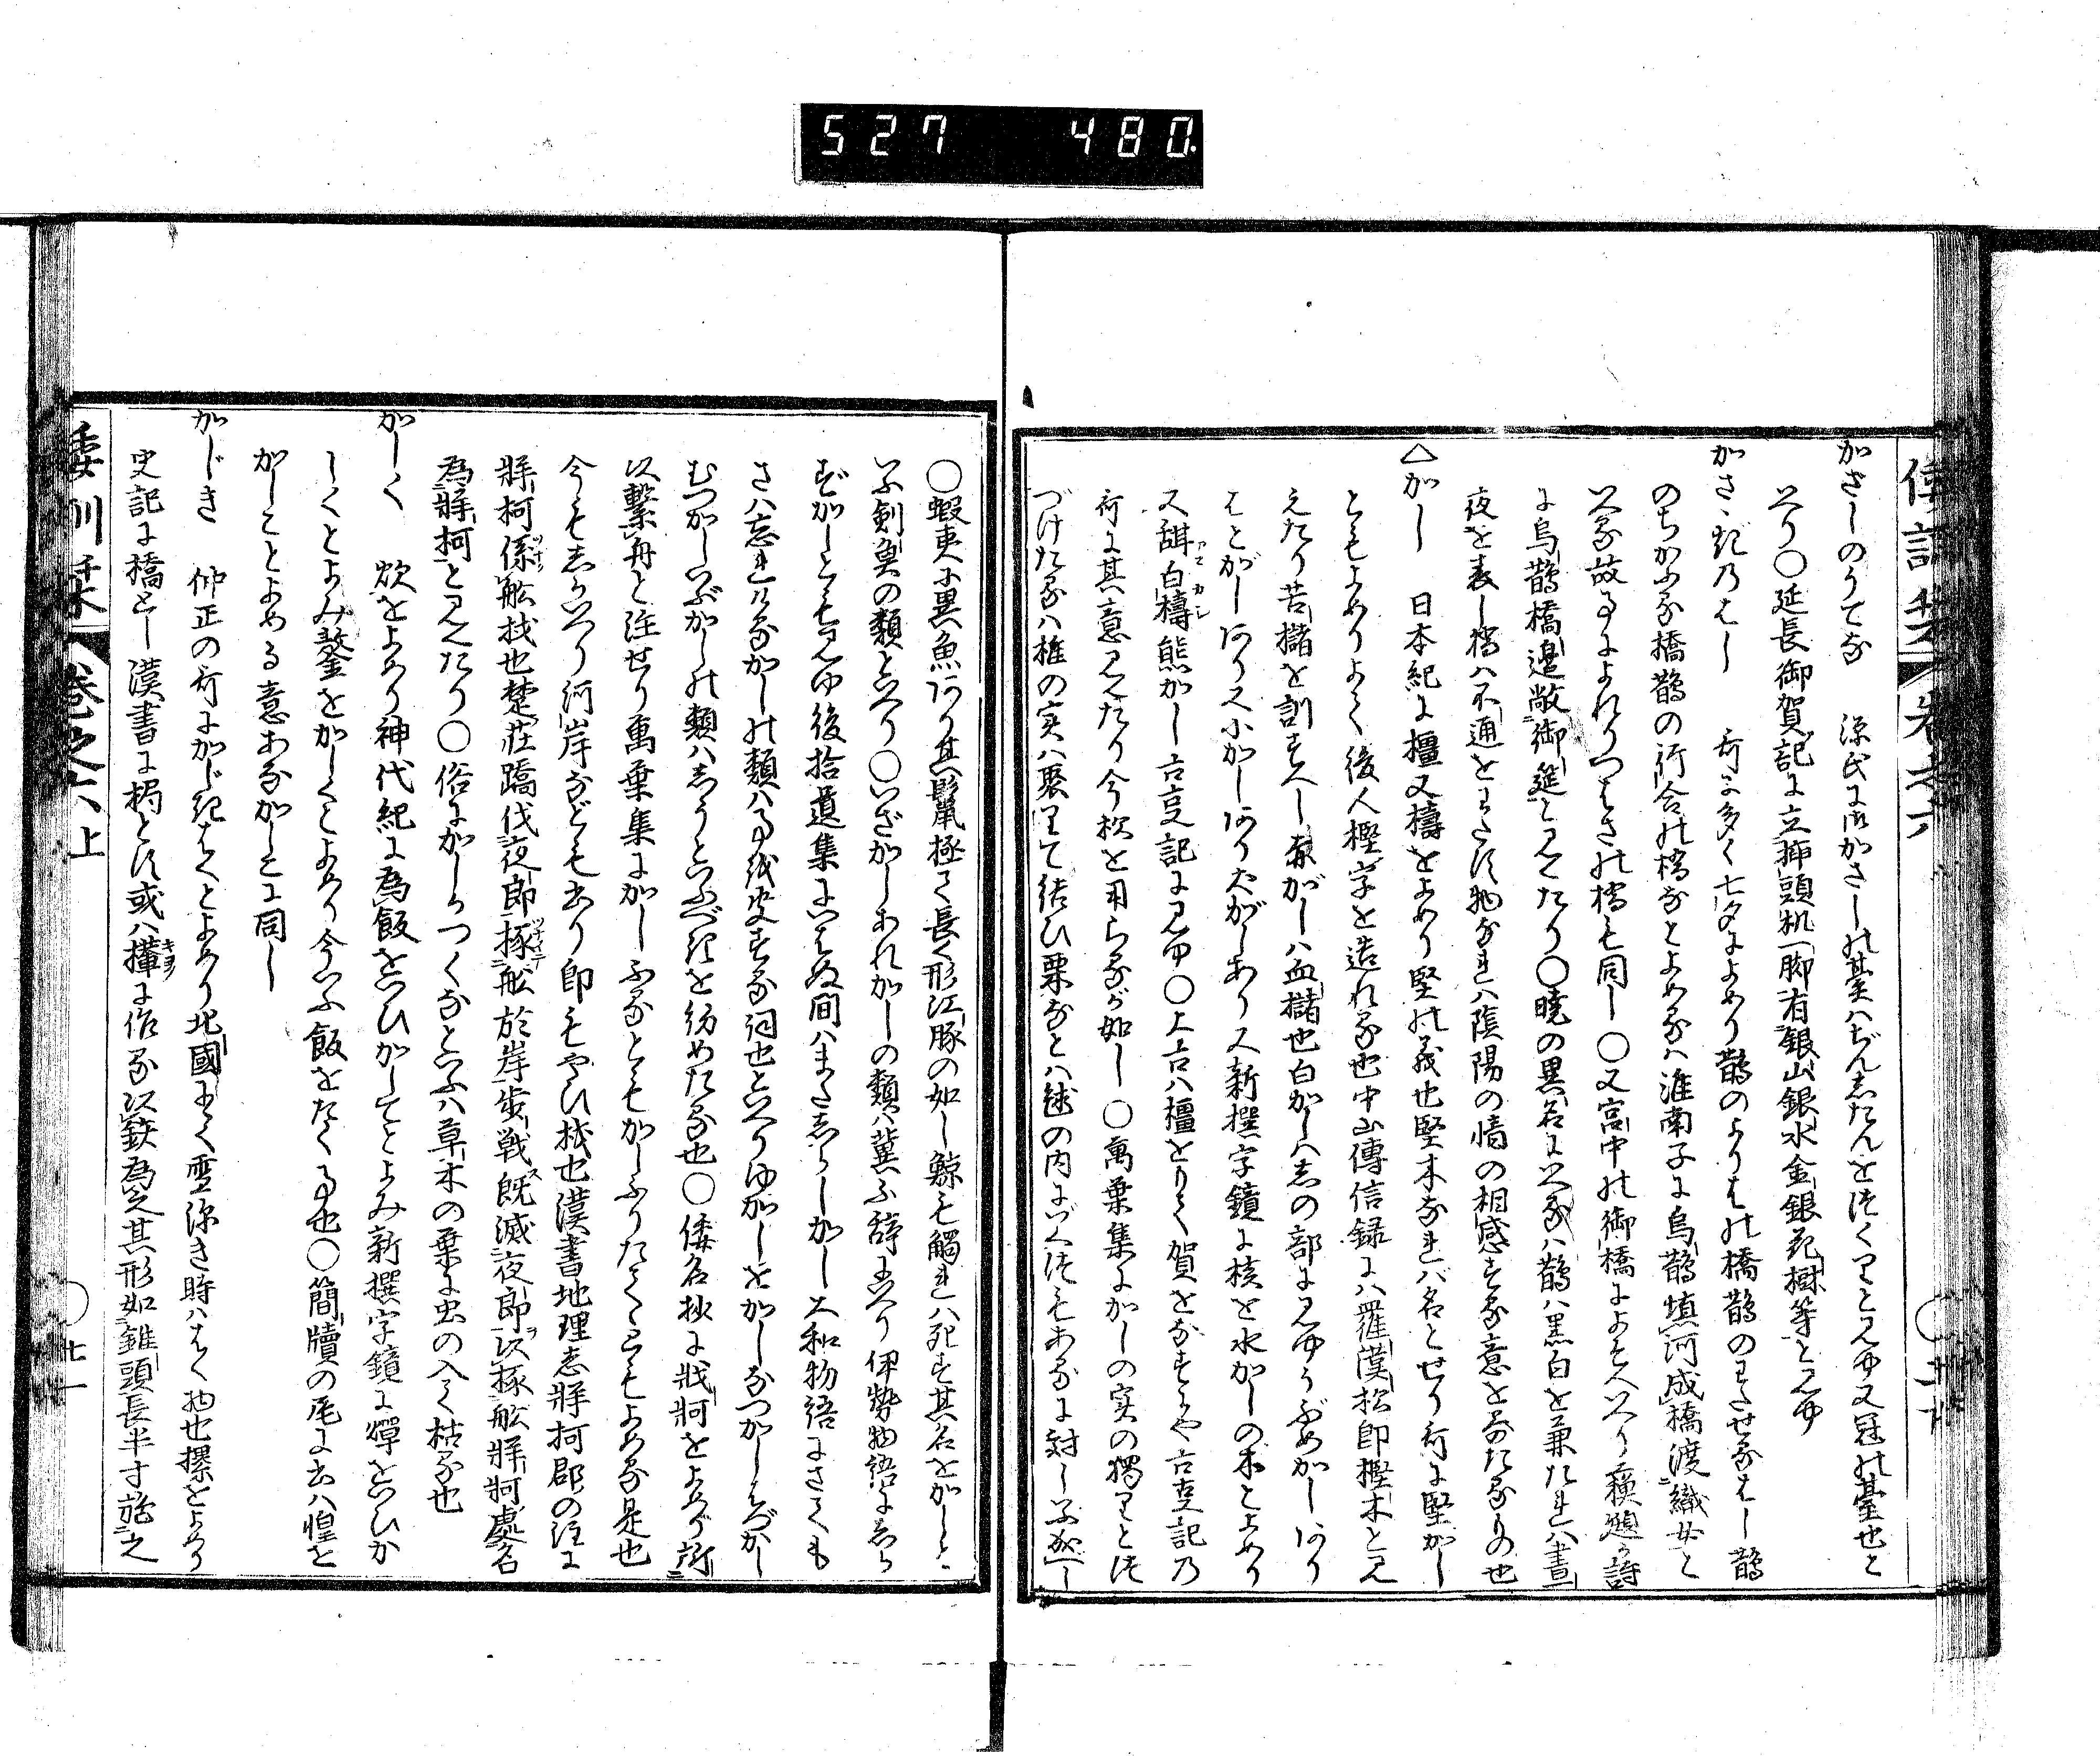 527 480.
かさしのうてな 源氏に御かさしの基ハぢんしたんをつくりとみゆ又冠の基也と
いへり〇延長御賀記に立挿頭机一脚有銀山銀水金銀花樹等とみゆ
かさゝぎのはし 哥に多く七夕によめり鵲のよりはの橋鵲のわたせるはし鵲
のちかふる橋鵲の行合の橋などよめるハ淮南子に烏鵲填河成橋渡織女と
いふ故事によれりつはさの橋も同し〇又宮中の御橋によそへいへり 詩
に烏鵲橋邊敞御筵とみえたり〇暁の異名にいへるハ鵲ハ黒白を兼たれハ晝
夜を表し橋ハ不通をわたす物なれハ陰陽の情の相感する意をなたるもの也
△かし 日本紀に橿又檮をよめり堅の義也堅木なれバ名とせり哥に堅がし
ともよめりよて後人樫字を造れる也中山傳信録にハ羅漢松即樫木とみ
えたり苦櫧を訓すへし赤がしハ血櫧也白かしハしの部にみゆうばめかしあり
はとがしあり又小かしあり大がしあり又新撰字鏡に核を水かしの木とよめり
又甜白檮熊かし古事記にみゆ〇上古ハ橿をもて賀をなすにや古事記の
哥に其意みえたり今松を用らるが如し〇萬葉集にかしの実の獨りとつ
づけたるハ椎の実ハ聚りて結ひ栗なとハ毬の内に
〇蝦夷に黒魚あり其鬣極て長く形江豚の如し鯨も觸れハ死す其名をかしと
いふ剣魚の類といへり〇いざかしあれかしの類ハ冀ふ辞にいへり伊勢物語にしら
ずかしともみゆ後拾遺集にいはぬ間ハまたしらしかし大和物語にさても
さハ忘れけるかしの類ハ事を決する詞也といへりゆかしをかしなつかしはづかし
むつかしいぶかしの類ハしうといふべきを約めたる也〇倭名抄に戕牁をよめり所
以繋舟と注せり萬葉集にかしふるともかしふりたてともよめる是也
今もしかいへり河岸なども出り即もやひ杙也漢書地理志牂柯郡の注に
牂柯係船杙也楚荘蹻伐夜郎椓船於岸歩戦既滅夜郎以椓船牂牁處名
為牂柯とみえたり〇俗にかしらつくなといふハ草木の葉に虫の入て枯る也
かしく 炊をよめり神代紀に為飯をいひかしてとよみ新撰字鏡に燀をいひか
しくとよみ鏊をかしくとよめり今いふ飯をたく事也〇簡牘の尾に出ハ惶を
かしことよめる意あなかしこに同し
かじき 仲正の哥にかじきはくとよめり北國にて雪深き時ハはく物也樏をよめり
史記に橋とし漢書に梮とす或ハ檋に作る以鉄為之其形如錐頭長半寸施之
倭訓栞 巻之六上 〇 廿一